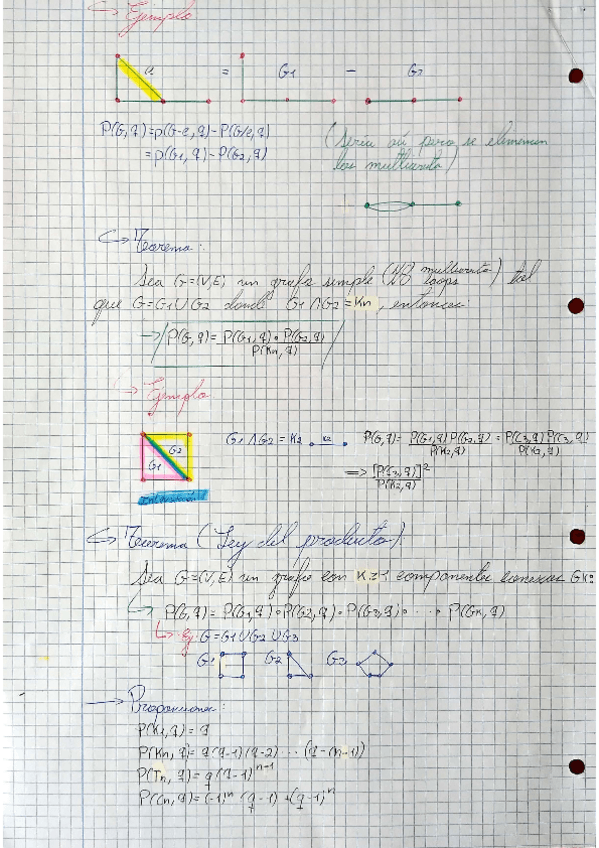 Ejemplo
e = G1 - G2
P(G,q)=p(G-e,q)-P(G/e,q)
=p(G1,q)-P(G2,q)
(Sería así pero se eliminan
las multiarista)
Teorema:
Sea G=(V,E) un grafo simple (NO multiarista loops) tal
que G=G1∪G2 donde G1∩G2=Kn, entonces:
P(G,q)= P(G1,q)•P(G2,q) / P(Kn,q)
Ejemplo
G1 G2
Intersección
G1∩G2=K2 K2 P(G,q)= P(G1,q)P(G2,q) / P(K2,q) = P(C3,q)P(C3,q) / P(K2,q)
=> [P(C3,q)]² / P(K2,q)
Teorema (Ley del producto)
Sea G=(V,E) un grafo con K≥1 componentes conexas GK:
P(G,q)= P(G1,q)•P(G2,q)•P(G3,q)• ... • P(GK,q)
Ej G=G1∪G2∪G3
G1 G2 G3
Proposiciones:
P(K1,q) = q
P(Kn,q)= q(q-1)(q-2) ... (q-(n-1))
P(Tn,q)= q(q-1)ⁿ⁻¹
P(Cn,q)=(-1)ⁿ (q-1) +(q-1)ⁿ